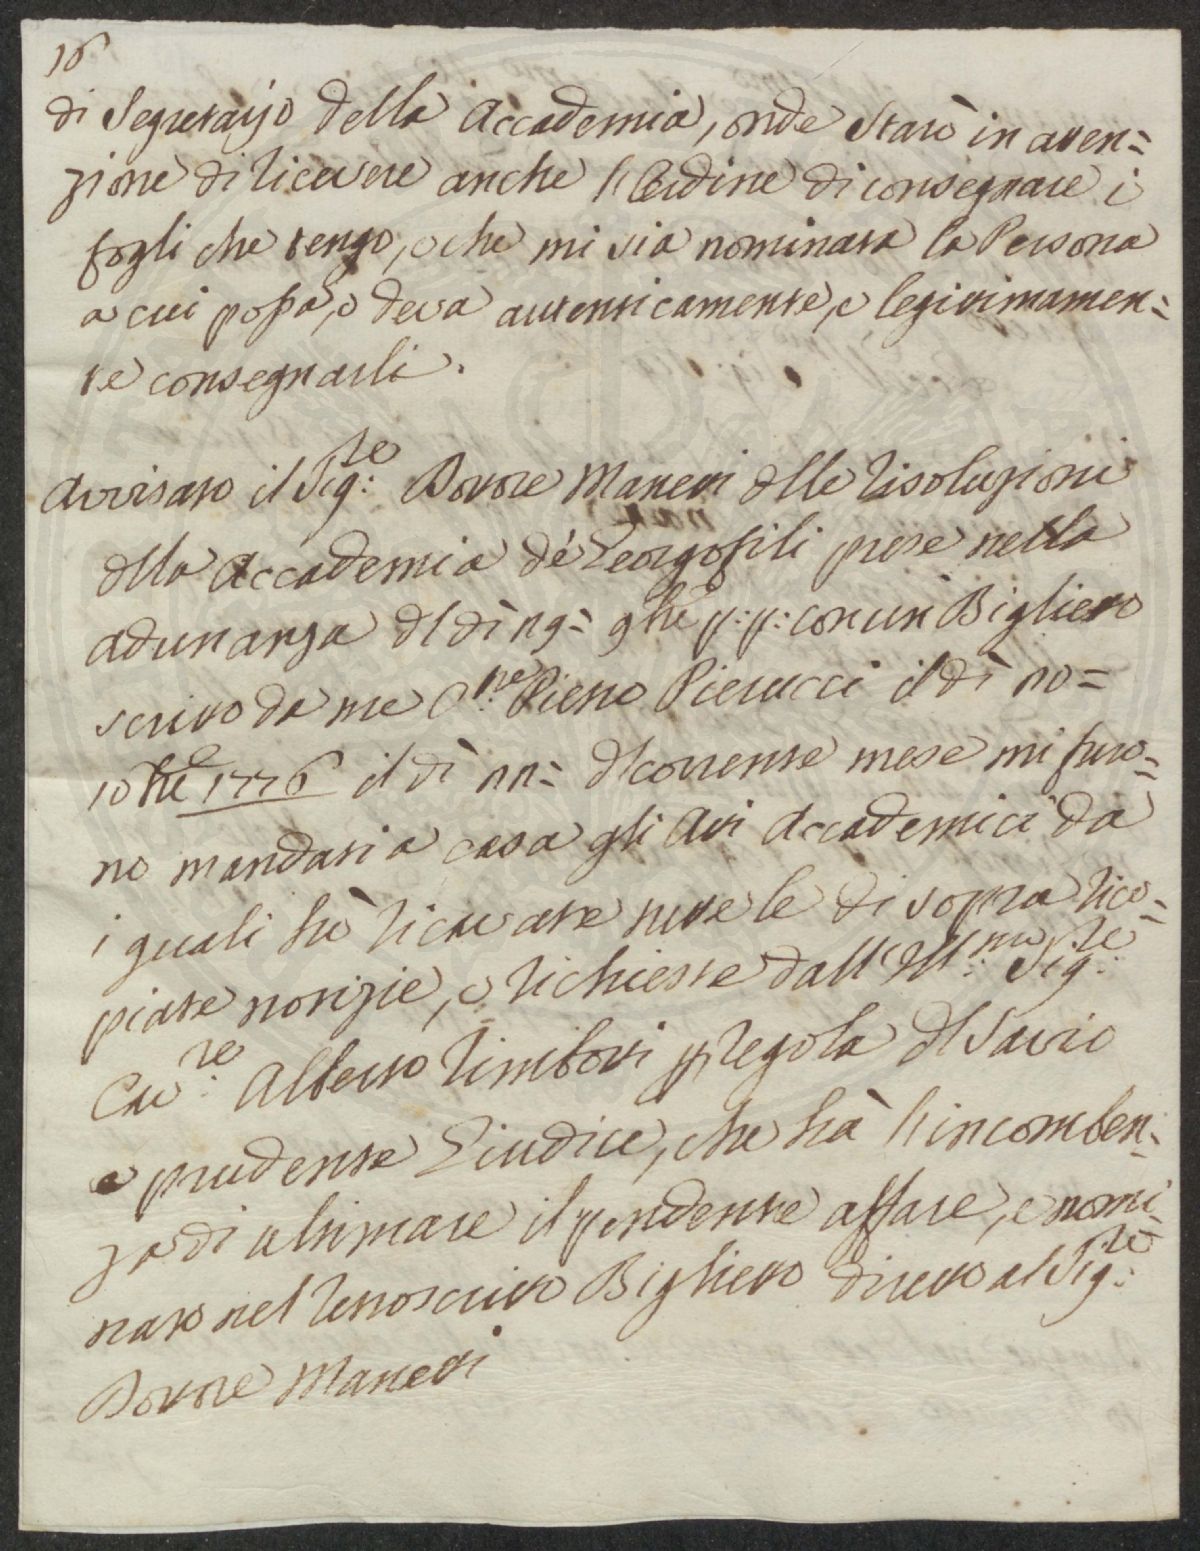 16
di Segretario della Accademia, onde starò in aten=
zione di ricevere anche l'Ordine di consegnare i
fogli che tengo, e che mi sia nominata la Persona
a cui possa, e deva autenticamente, e legitimamen=
te consegnarli.
Avvisato il Sig:re Dottore Maneti dlle risoluzioni
dlla Accademia dè Georgofili prese nella
adunanza dl dì 19= 9bre p:p: con un Biglietto
scritto da me C:ne Pietro Pierucci il dì 10=
10bre 1776 il dì 11= dl corrente mese mi furo=
no mandati a casa gli Atti Accademici da
i quali hò ricavate tutte le di sopra rico=
piate notizie, e richieste dall' Ill:mo Sig:re
Cav:re Alberto Rimbotti p regola dl Savio
e prudente Giudice, che hà l'incomben=
za di ultimare il pendente affare, e nomi=
nato nel retroscritto Biglietto diretto al Sig:re
Dottore Maneti